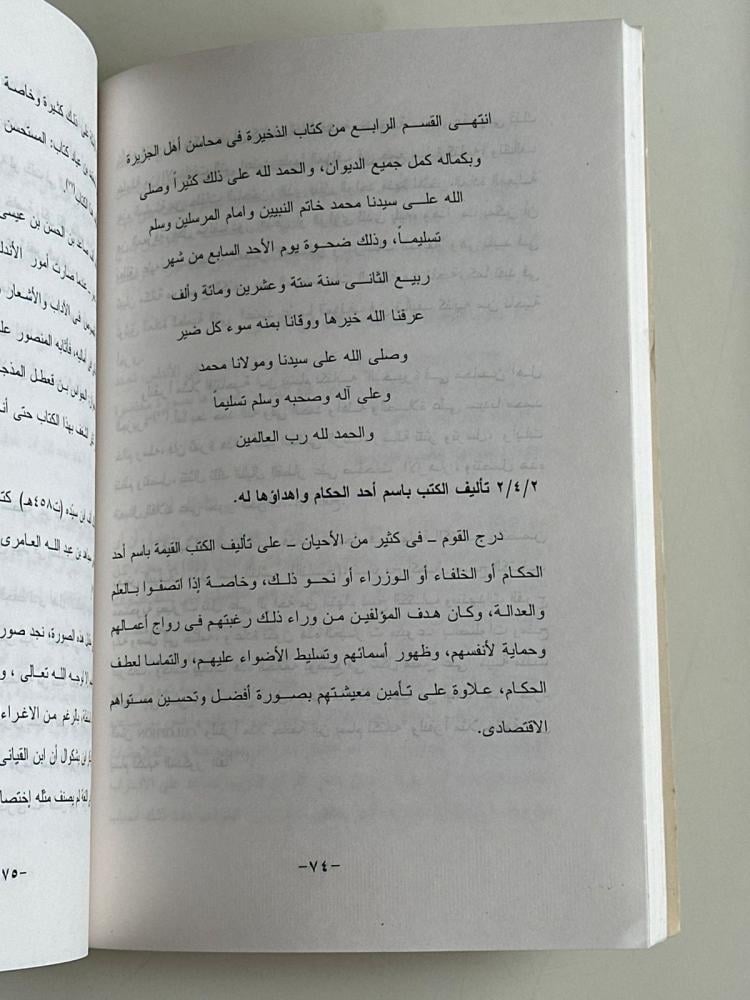 انتهى القسم الرابع من كتاب الذخيرة فى محاسن أهل الجزيرة
وبكماله كمل جميع الديوان، والحمد لله على ذلك كثيراً وصلى
الله على سيدنا محمد خاتم النبيين وامام المرسلين وسلم
تسليماً، وذلك ضحوة يوم الأحد السابع من شهر
ربيع الثانى سنة ستة وعشرين ومائة وألف
عرفنا الله خيرها ووقانا بمنه سوء كل ضير
وصلى الله على سيدنا ومولانا محمد
وعلى آله وصحبه وسلم تسليماً
والحمد لله رب العالمين
٢/٤/٢ تأليف الكتب باسم أحد الحكام واهداؤها له.
درج القوم – فى كثير من الأحيان – على تأليف الكتب القيمة باسم أحد
الحكام أو الخلفاء أو الوزراء أو نحو ذلك، وخاصة إذا اتصفوا بالعلم
والعدالة، وكان هدف المؤلفين من وراء ذلك رغبتهم فى رواج أعمالهم
وحماية لأنفسهم، وظهور أسمائهم وتسليط الأضواء عليهم، والتماسا لعطف
الحكام، علاوة على تأمين معيشتهم بصورة أفضل وتحسين مستواهم
الاقتصادى.
–٧٤–
ذلك كثيرة وخاصة
كتاب: المستحسن
الكتاب(٣).
بن الحسن بن عيسى
عندما صارت أمور الأندلـ
فى الآداب والأشعار
فأثابه المنصور علـ
بن قعطل المذحـ
بهذا الكتاب حتى أنـ
ابن سيده (ت٤٥٨هـ) كتـ
بن عبد الله العامرى
هذه الصورة، نجد صور
لوجه الله تعالى ، و
بالرغم من الاغراء
بشكوال أن ابن القيانى
لم يصنف مثله إختصا
٧٥–